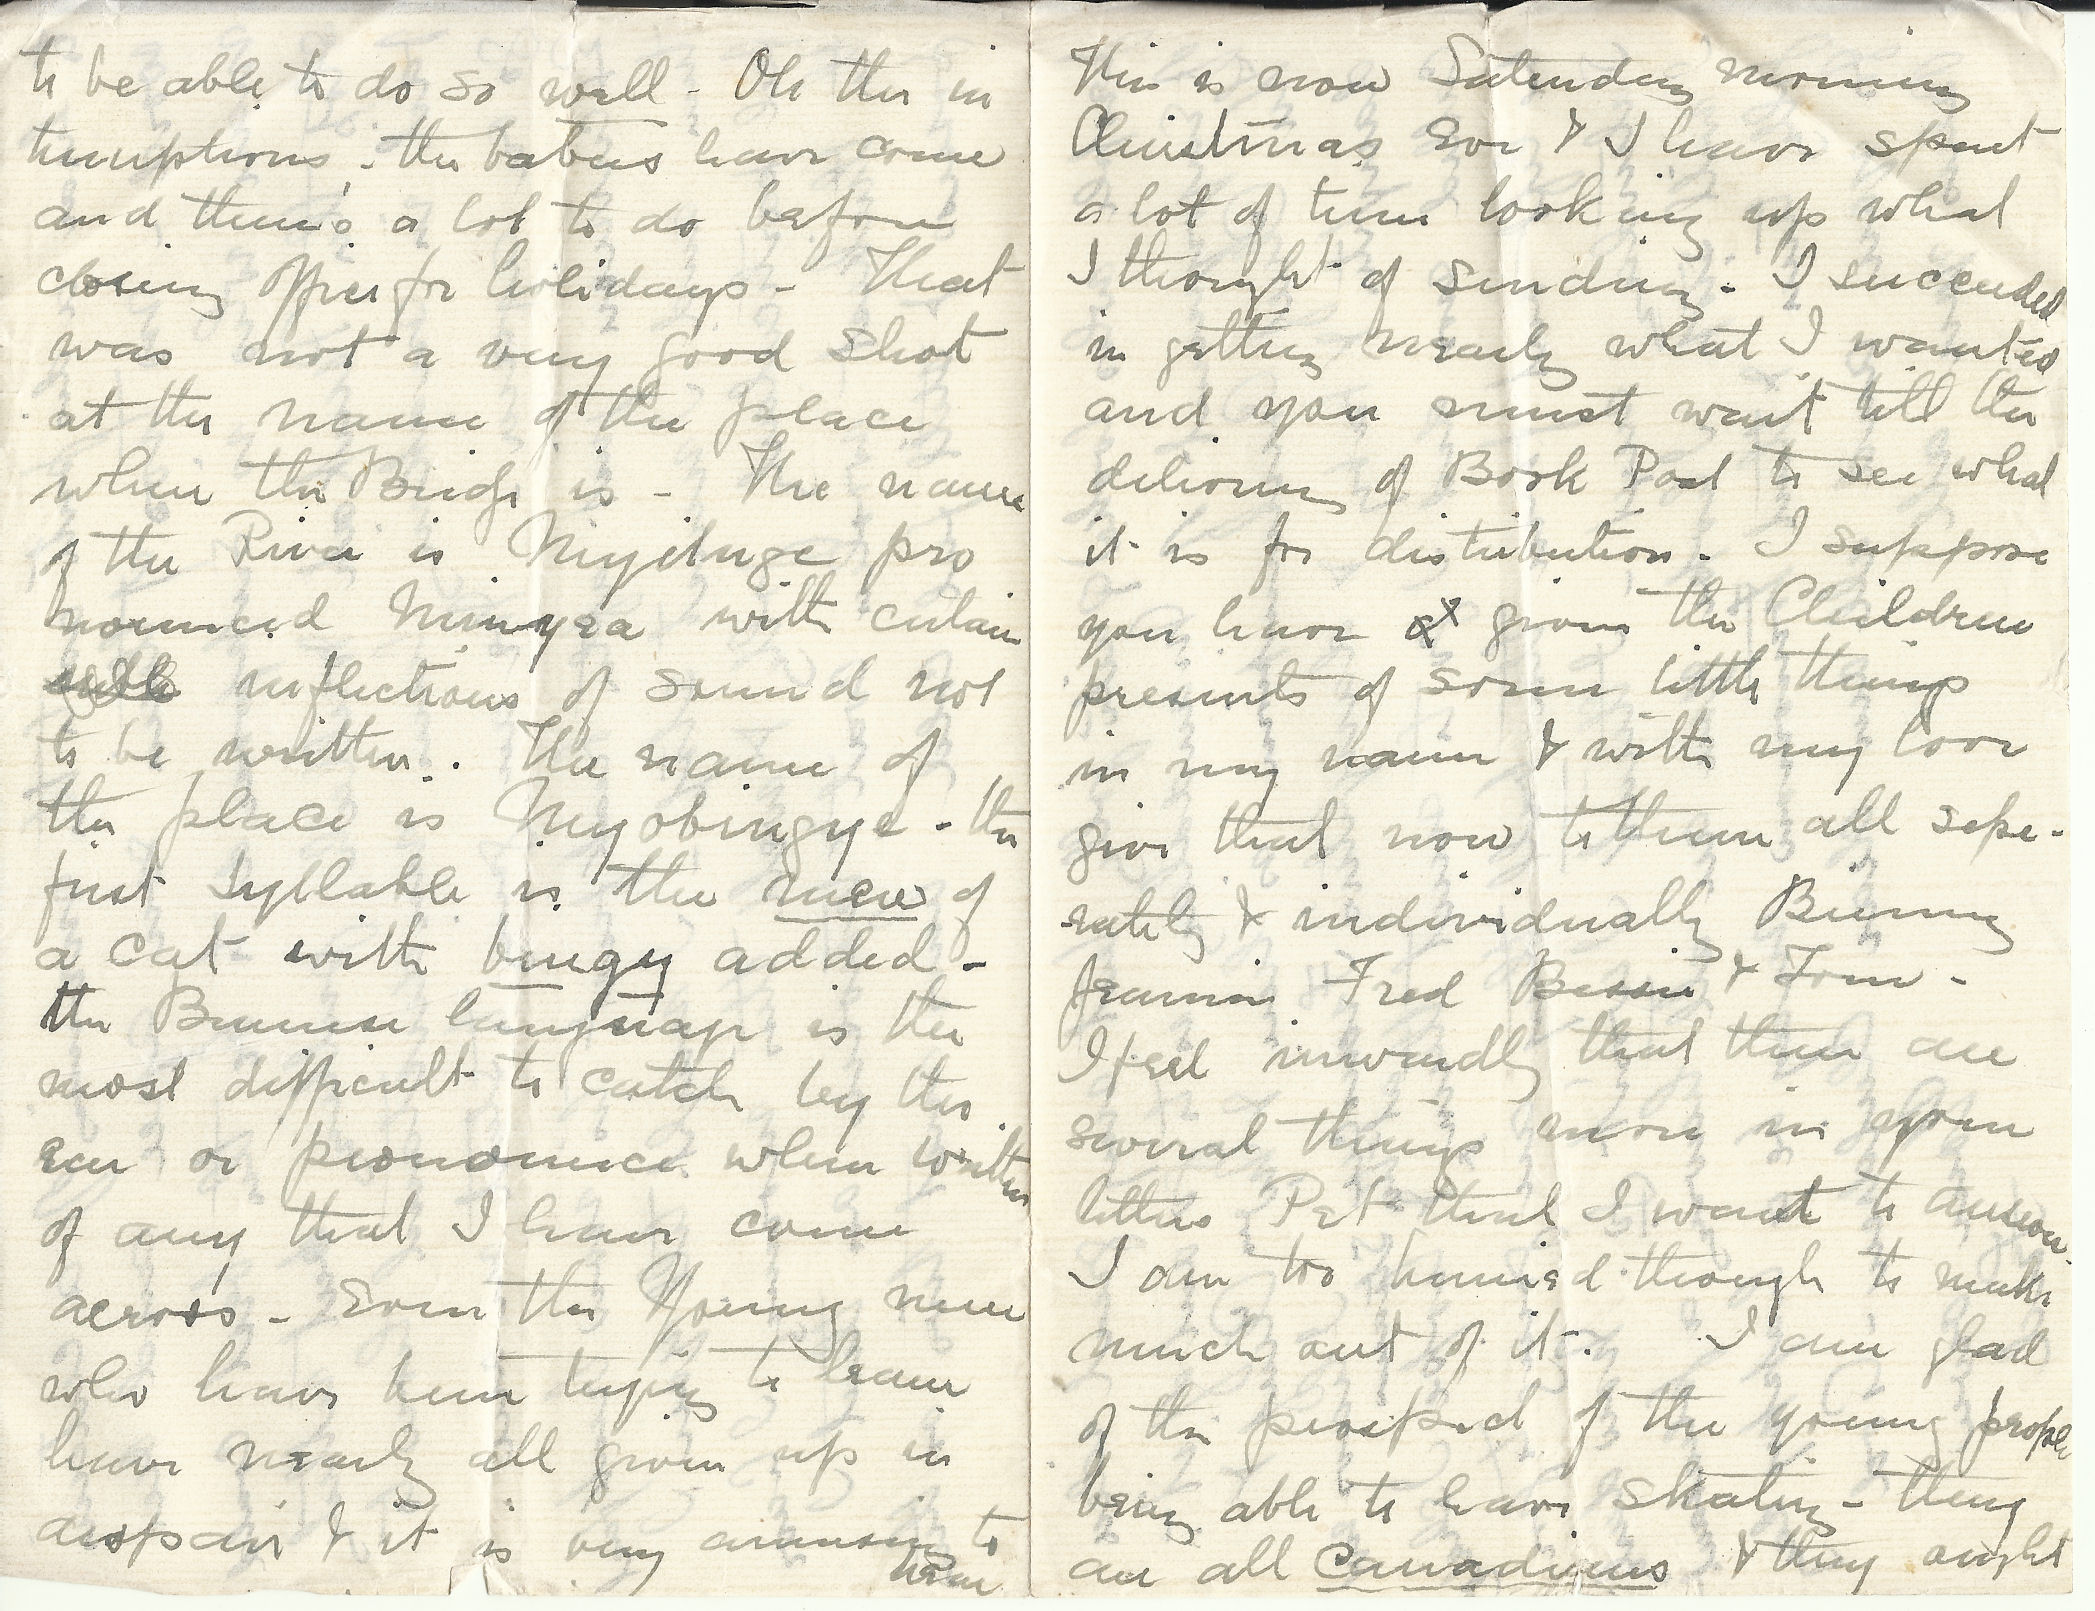 to be able to do so well - Oh the in
turuptions, - the babus have come
and there's a lot to do before
closing Office for holidays - That
was not a very good shot
at the name of the place
when the Bridge is - The name
of the River is Myitnge pro
nounced Minyea with certain
inflections of sound not
to be written. The name of
the place is Myobingye - the
first syllable is the mew of
a cat with bingy added -
the Burmese language is the
most difficult to catch by the
ear or pronounce when written
of any that I have come
across - Even the Young men
who have been trying to learn
have nearly all given up in
despair & it is very amusing to
hear
This is now Saturday morning
Christmas Eve & I have spent
a lot of time looking up what
I thought of sending. I succeeded
in getting nearly what I wanted
and you must wait till the
delivery of Book Post to see what
it is for distribution. I suppose
you have given the Children
presents of some little things
in my name & with my love
give that now to them all sepe-
rately & individually Binny
Jeannie Fred Bessie & Tom -
I feel inwardly that there are
several things more in your
letters Pet that I want to answer.
I am too hurried though to make
much out of it. I am glad
of the prospect of the young people
being able to have skating - they
are all Canadians & they ought